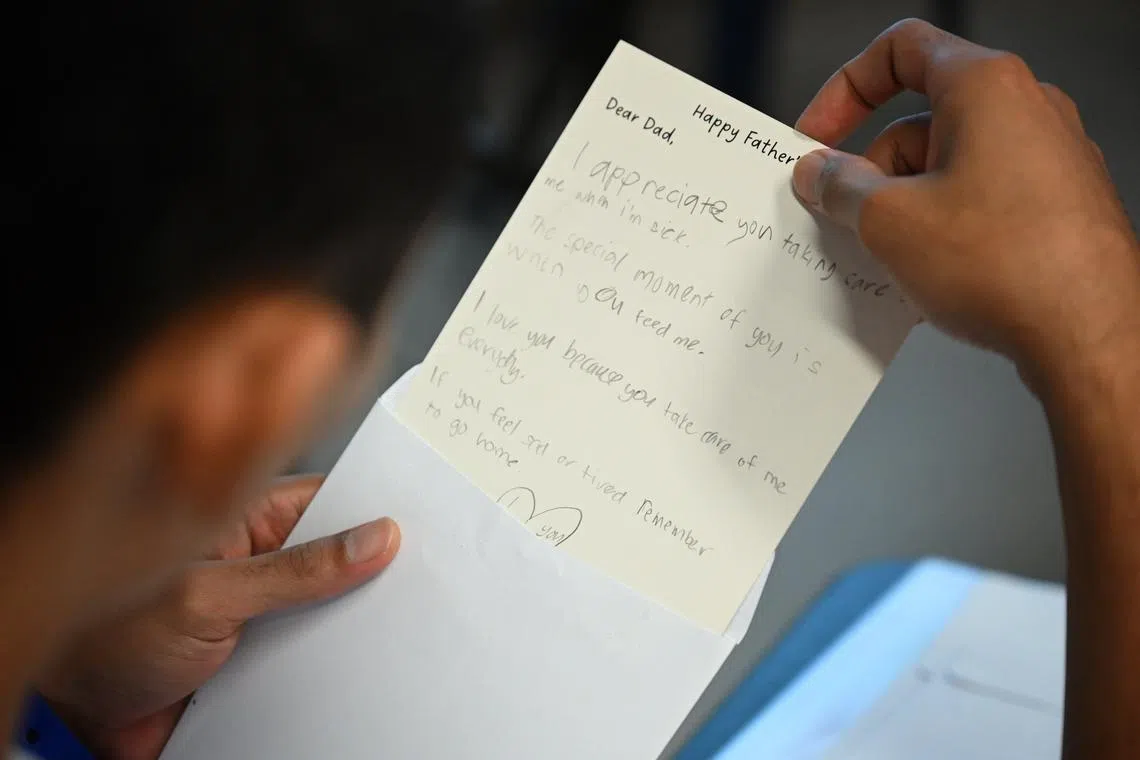 Happy Father'
Dear Dad,
I appreciate you taking care
me when i'm sick.
The special moment of you is
when you feed me.
I love you because you take care of me
everydy.
If you feel sad or tired remember
to go home.
I
you